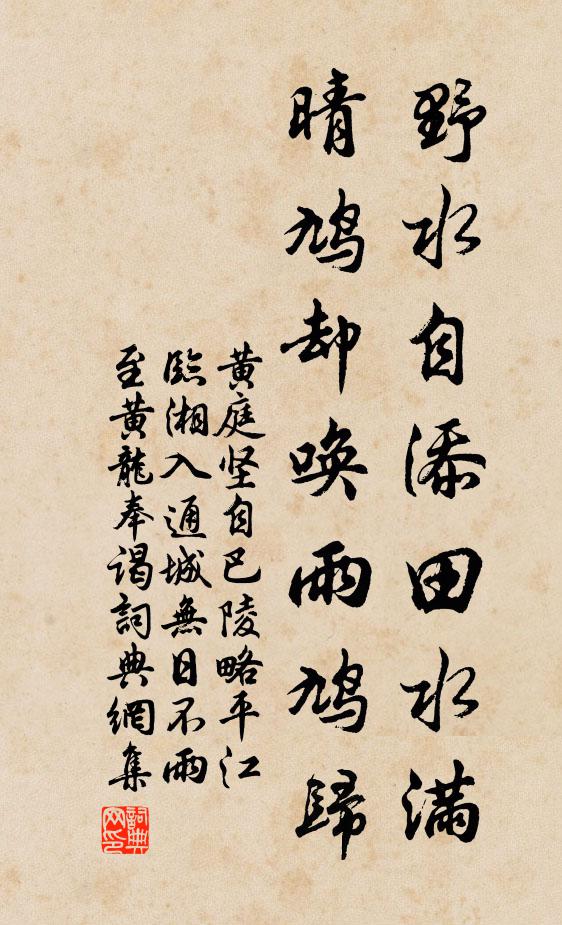 野水自添田水满
晴鸠却唤雨鸠歸
黄庭坚自巴陵略平江
臨湘入通城無日不雨
至黄龍奉谒詞典網集
詞典網印